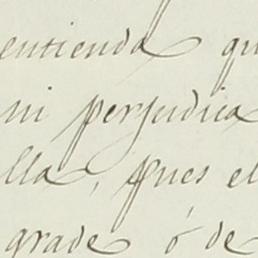 entienda qu
ni perjudica
lla, pues el
grade ó de